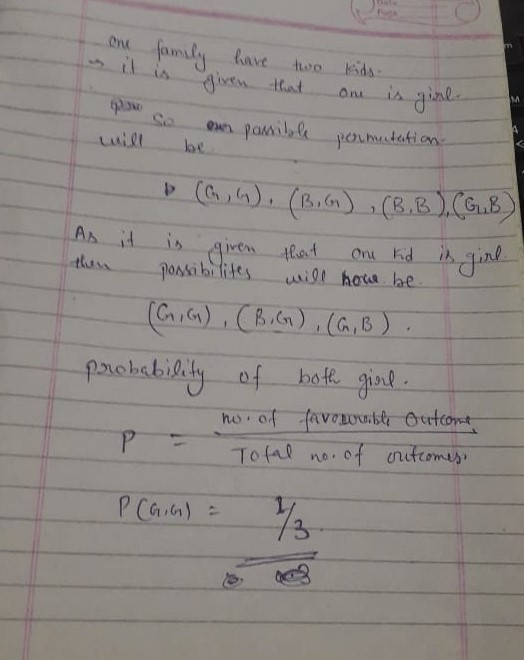 one family have two kids.
→ it is given that one is girl.
so possible permutation
will be
(G,G), (B,G), (B,B), (G,B)
As it is given that one kid is girl.
then possibilites will be.
(G,G), (B,G), (G,B).
probability of both girl.
P = no. of favourable outcome
Total no. of outcomes.
P(G,G) = 1/3